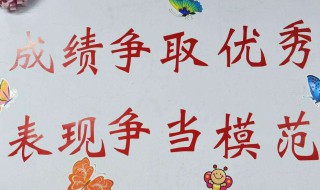 成绩争取优秀
表现争当模范